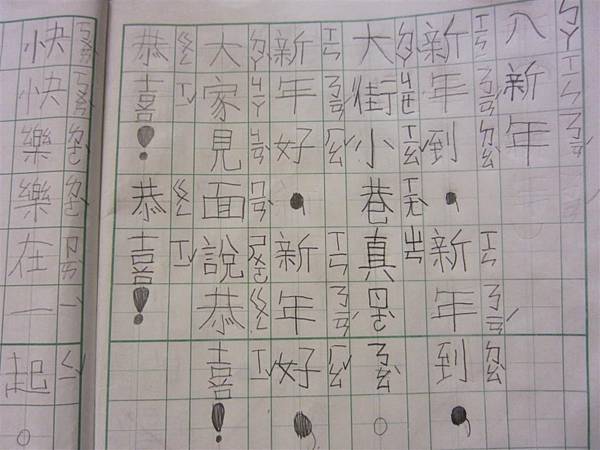 八新年
新年到，新年到，
大街小巷真是ㄋㄠˋ。
新年好，新年好，
大家見面說恭喜！
恭喜！恭喜！
快快樂樂在一起。